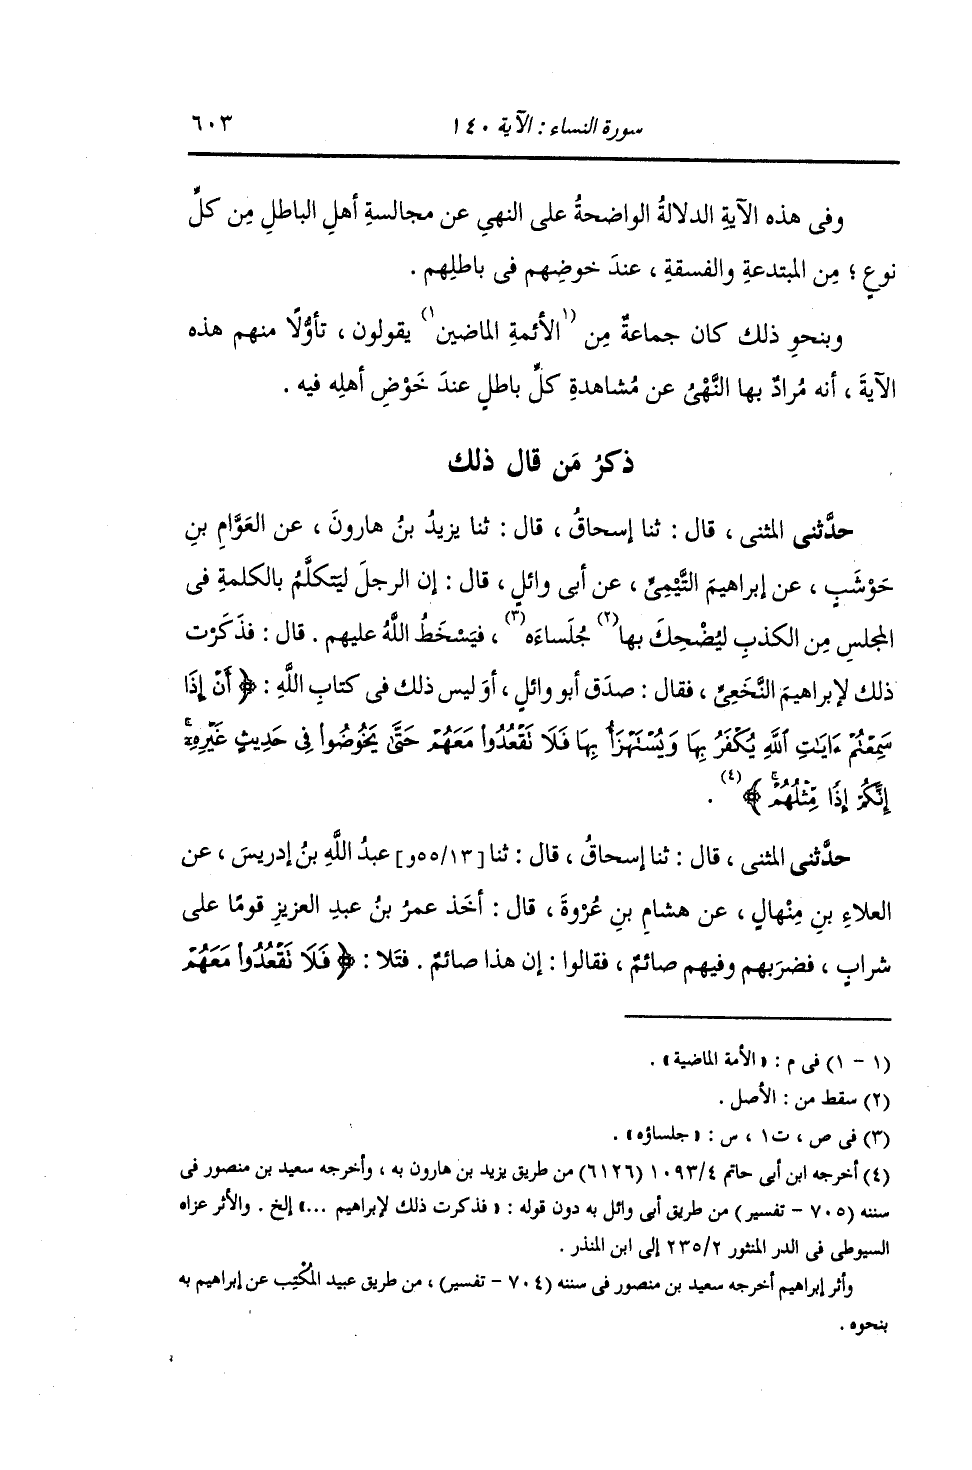 سورة النساء : الآية ١٤٠ ٦٠٣
وفى هذه الآيةِ الدلالةُ الواضحةُ على النهيِ عن مجالسةِ أهلِ الباطلِ مِن كلِّ
نوعٍ ؛ مِن المبتدعةِ والفسقةِ ، عندَ خوضِهم فى باطلِهم .
وبنحوِ ذلك كان جماعةٌ مِن (١الأئمةِ الماضين١) يقولون ، تأوُّلًا منهم هذه
الآيةَ ، أنه مُرادٌ بها النَّهْىُ عن مُشاهدةِ كلِّ باطلٍ عندَ خَوْضِ أهلِه فيه .
ذكرُ مَن قال ذلك
حدَّثنى المثنى ، قال : ثنا إسحاقُ ، قال : ثنا يزيدُ بنُ هارونَ ، عن العَوَّامِ بنِ
حَوْشَبٍ ، عن إبراهيمَ التَّيْمِىِّ ، عن أبى وائلٍ ، قال : إن الرجلَ ليَتكلَّمُ بالكلمةِ فى
المجلسِ مِن الكذبِ ليُضْحِكَ بها(٢) جُلَساءَه(٣) ، فيَسْخَطُ اللَّهُ عليهم . قال : فذكَرْت
ذلك لإبراهيمَ النَّخَعِىِّ ، فقال : صدَق أبو وائلٍ ، أوَ ليس ذلك فى كتابِ اللَّهِ : ﴿ أَنْ إِذَا
سَمِعْتُمْ ءَايَٰتِ ٱللَّهِ يُكْفَرُ بِهَا وَيُسْتَهْزَأُ بِهَا فَلَا تَقْعُدُوا۟ مَعَهُمْ حَتَّىٰ يَخُوضُوا۟ فِى حَدِيثٍ غَيْرِهِۦٓ ۚ
إِنَّكُمْ إِذًا مِّثْلُهُمْ ۗ ﴾(٤) .
حدَّثنى المثنى ، قال : ثنا إسحاقُ ، قال : ثنا [٥٥/١٣و] عبدُ اللَّهِ بنُ إدريسَ ، عن
العلاءِ بنِ مِنْهالٍ ، عن هشامِ بنِ عُرْوةَ ، قال : أخَذ عمرُ بنُ عبدِ العزيزِ قومًا على
شرابٍ ، فضرَبهم وفيهم صائمٌ ، فقالوا : إن هذا صائمٌ . فتَلا : ﴿ فَلَا تَقْعُدُوا۟ مَعَهُمْ
(١ - ١) فى م : « الأمة الماضية » .
(٢) سقط من : الأصل .
(٣) فى ص ، ت١ ، س : « جلساؤه » .
(٤) أخرجه ابن أبى حاتم ١٠٩٣/٤ (٦١٢٦) من طريق يزيد بن هارون به ، وأخرجه سعيد بن منصور فى
سننه (٧٠٥ - تفسير) من طريق أبى وائل به دون قوله : « فذكرت ذلك لإبراهيم ...» إلخ . والأثر عزاه
السيوطى فى الدر المنثور ٢٣٥/٢ إلى ابن المنذر .
وأثر إبراهيم أخرجه سعيد بن منصور فى سننه (٧٠٤ - تفسير) ، من طريق عبيد المُكْتِب عن إبراهيم به
بنحوه .